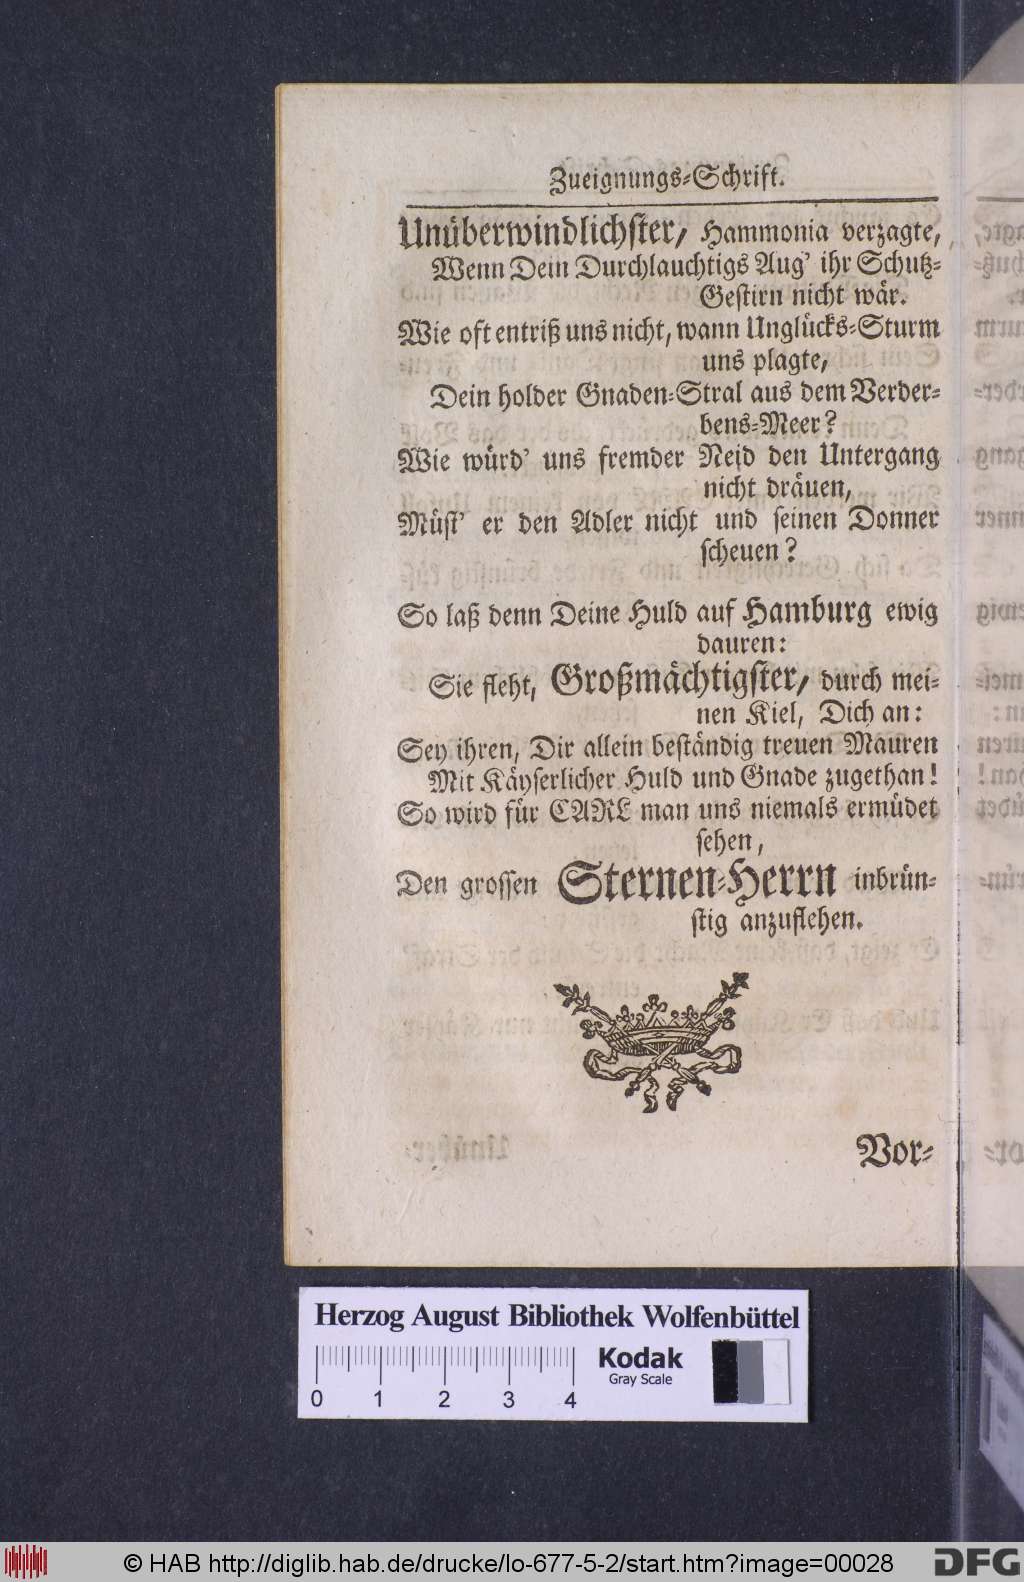 Zueignungs-Schrift.
Unüberwindlichster, Hammonia verzagte,
Wenn Dein Durchlauchtigs Aug' ihr Schutz-
Gestirn nicht wär.
Wie oft entriß uns nicht, wann Unglücks-Sturm
uns plagte,
Dein holder Gnaden-Stral aus dem Verder-
bens-Meer?
Wie würd' uns fremder Neid den Untergang
nicht dräuen,
Müst' er den Adler nicht und seinen Donner
scheuen?
So laß denn Deine Huld auf Hamburg ewig
dauren:
Sie fleht, Großmächtigster, durch mei-
nen Kiel, Dich an:
Sey ihren, Dir allein beständig treuen Mauren
Mit Käyserlicher Huld und Gnade zugethan!
So wird für CARL man uns niemals ermüdet
sehen,
Den grossen Sternen-Herrn inbrün-
stig anzuflehen.
Vor-
Herzog August Bibliothek Wolfenbüttel
Kodak
Gray Scale
0 1 2 3 4
© HAB http://diglib.hab.de/drucke/lo-677-5-2/start.htm?image=00028
DFG